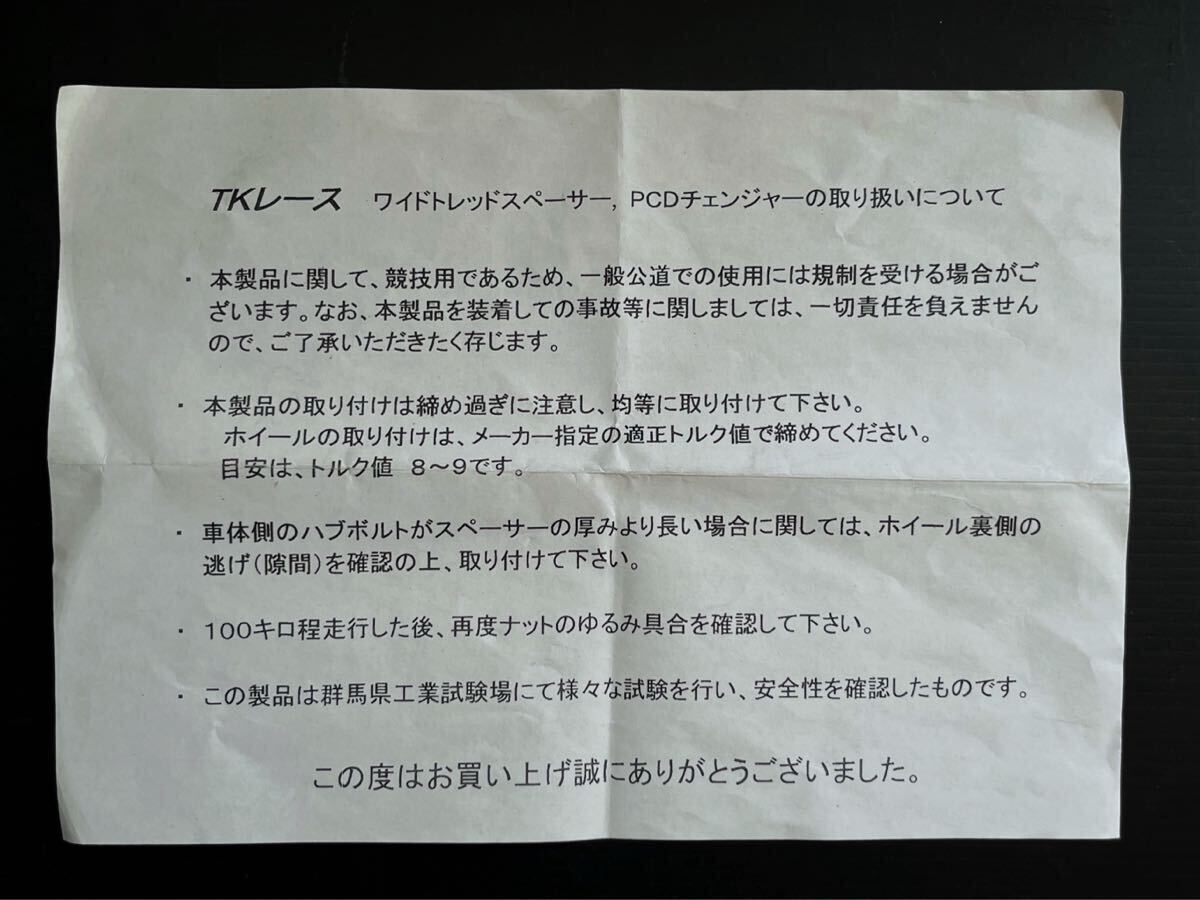 TKレース ワイドトレッドスペーサー, PCDチェンジャーの取り扱いについて
・ 本製品に関して、競技用であるため、一般公道での使用には規制を受ける場合がご
ざいます。なお、本製品を装着しての事故等に関しましては、一切責任を負えません
ので、ご了承いただきたく存じます。
・ 本製品の取り付けは締め過ぎに注意し、均等に取り付けて下さい。
ホイールの取り付けは、メーカー指定の適正トルク値で締めてください。
目安は、トルク値 8～9です。
・ 車体側のハブボルトがスペーサーの厚みより長い場合に関しては、ホイール裏側の
逃げ(隙間)を確認の上、取り付けて下さい。
・ 100キロ程走行した後、再度ナットのゆるみ具合を確認して下さい。
・ この製品は群馬県工業試験場にて様々な試験を行い、安全性を確認したものです。
この度はお買い上げ誠にありがとうございました。